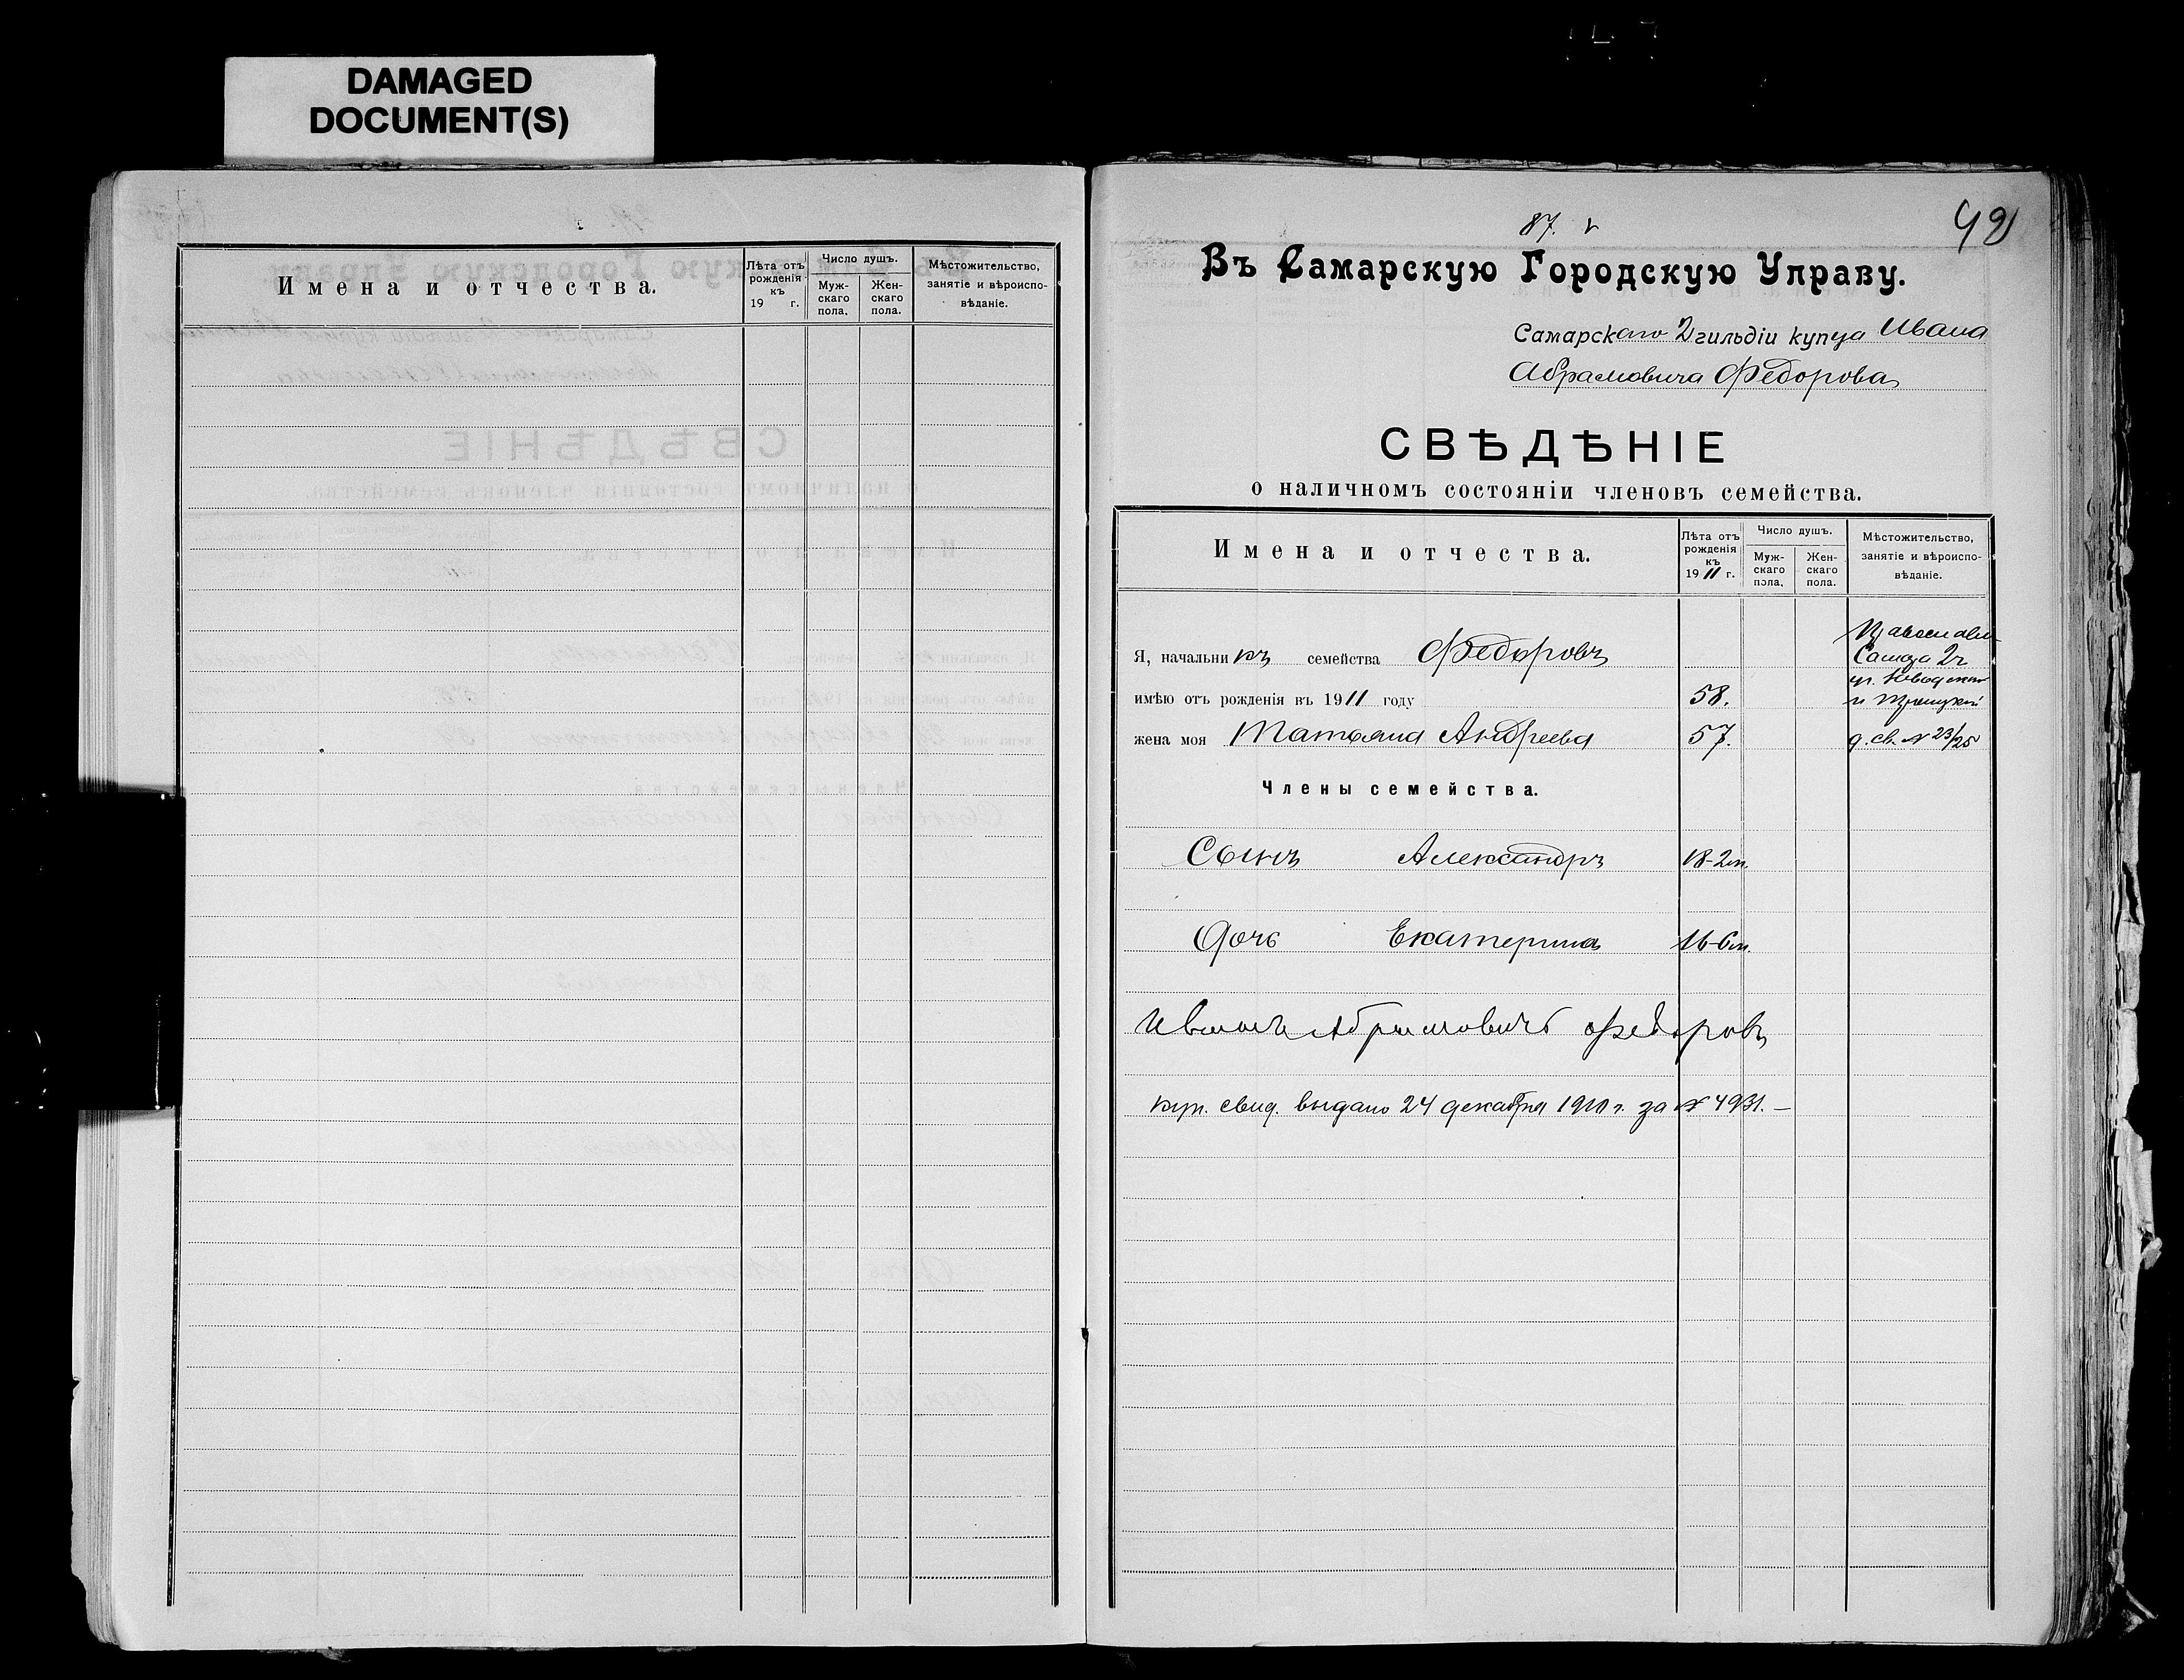 DAMAGED
DOCUMENT(S)
Имена и отчества.
Лѣта отъ рожденія къ 19 г.
Число душъ.
Муж-скаго пола.
Жен-скаго пола.
Мѣстожительство, занятіе и вѣроиспо-вѣданіе.
87. v
42
Въ Самарскую Городскую Управу.
Самарскаго 2 гильдіи купца Ивана
Абрамовича Федорова
СВѢДѢНІЕ
о наличномъ состояніи членовъ семейства.
Имена и отчества.
Лѣта отъ рожденія къ 1911 г.
Число душъ.
Муж-скаго пола.
Жен-скаго пола.
Мѣстожительство, занятіе и вѣроиспо-вѣданіе.
Православн
Я, начальникъ семейства Федоровъ
имѣю отъ рожденія въ 1911 году 58.
и Троицкой
жена моя Татьяна Андреева 57. д. св. № 23/25
Члены семейства.
Сынъ Александръ 18-2м.
Дочь Екатерина 16-6м.
Иванъ Абрамовичъ Федоровъ
куп. свид. выдано 24 декабря 1910 г. за № 4931. –